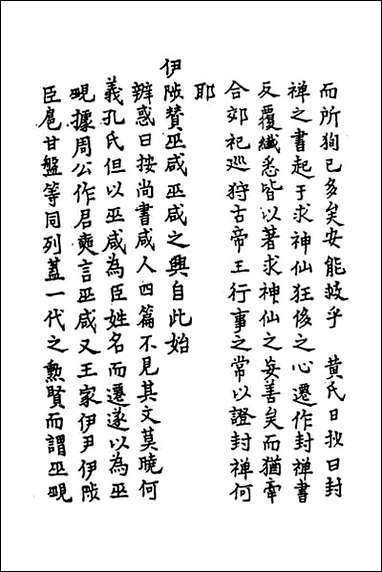 而所狥已多矣安能救乎　黄氏日抄曰封
禅之書起于求神仙狂侈之心遷作封禅書
反覆纖悉皆以著求神仙之妄善矣而猶牽
合郊祀巡狩古帝王行事之常以證封禅何
耶
伊陟賛巫咸巫咸之興自此始
辨惑曰按尚書咸人四篇不見其文莫曉何
義孔氏但以巫咸為臣姓名而遷遂以為巫
覡據周公作君奭言巫咸乂王家伊尹伊陟
臣扈甘盤等同列蓋一代之勲賢而謂巫覡